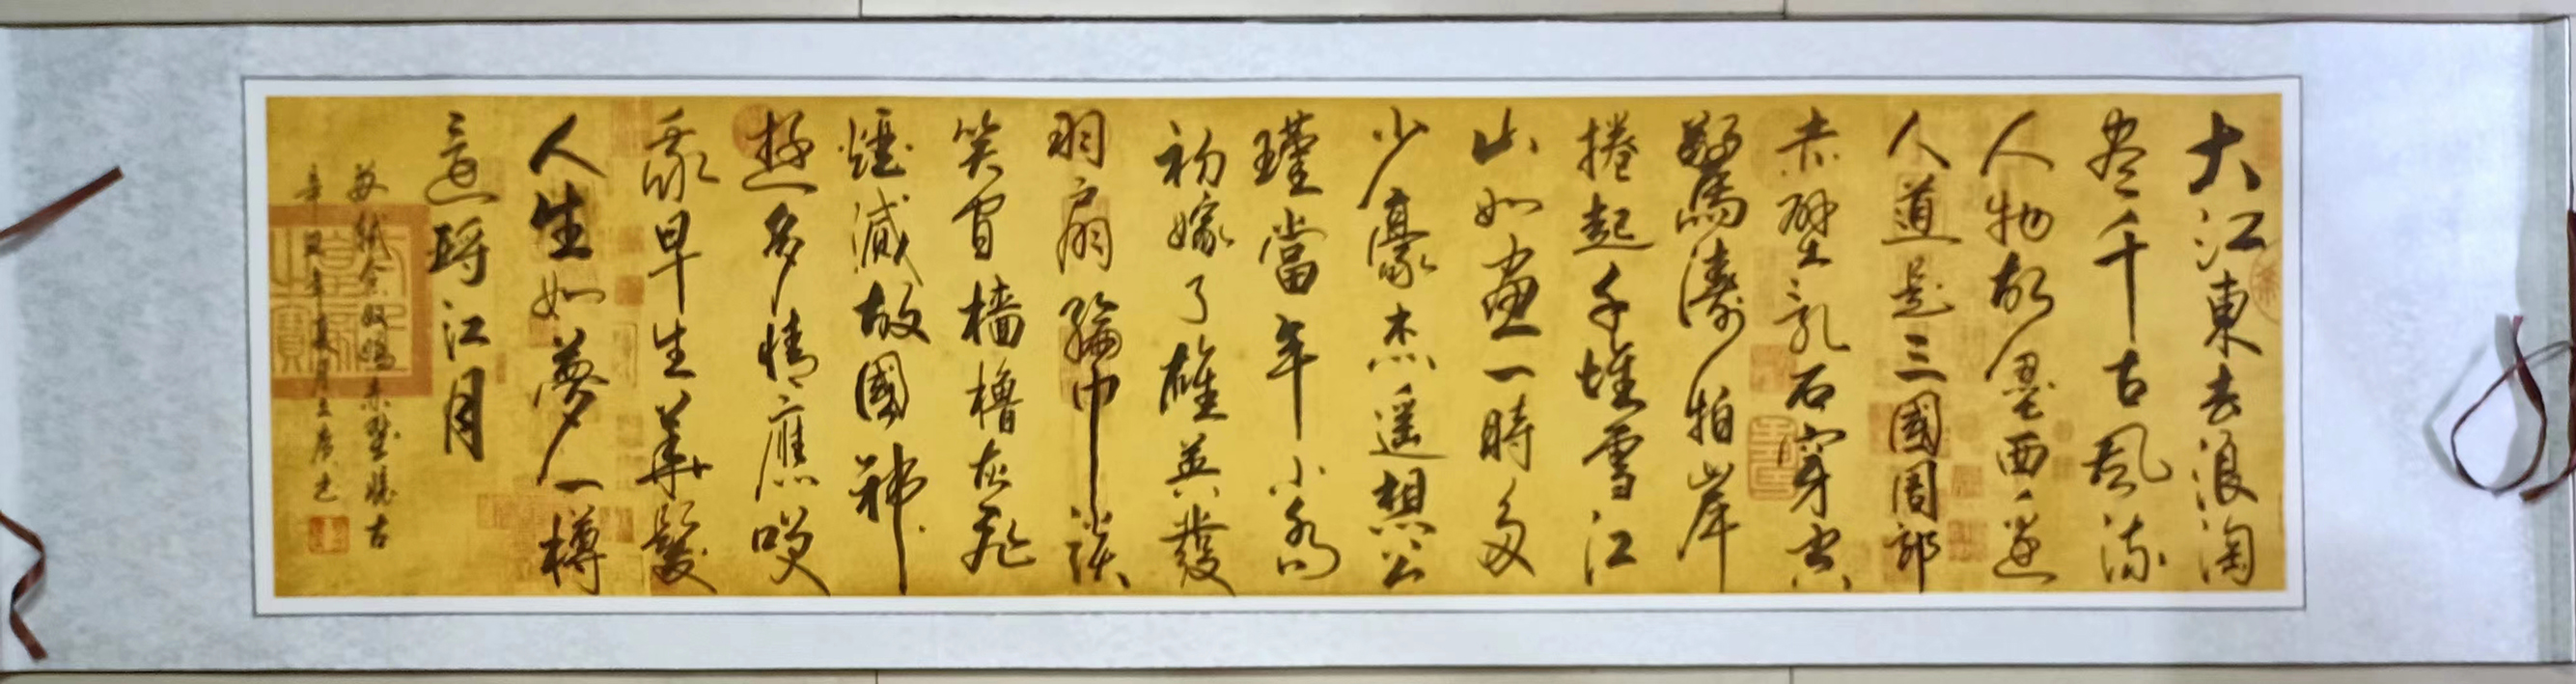 大江東去浪淘
尽千古風流
人物故壘西邊
人道是三國周郎
赤壁乱石穿空
驚濤拍岸
捲起千堆雪江
山如畫一時多
少豪杰遥想公
瑾當年小喬
初嫁了雄英發
羽扇綸巾談
笑間檣櫓灰飛
煙滅故國神
遊多情應咲
我早生華髮
人生如夢一樽
還酹江月
蘇軾念奴嬌赤壁懷古
辛丑年夏月